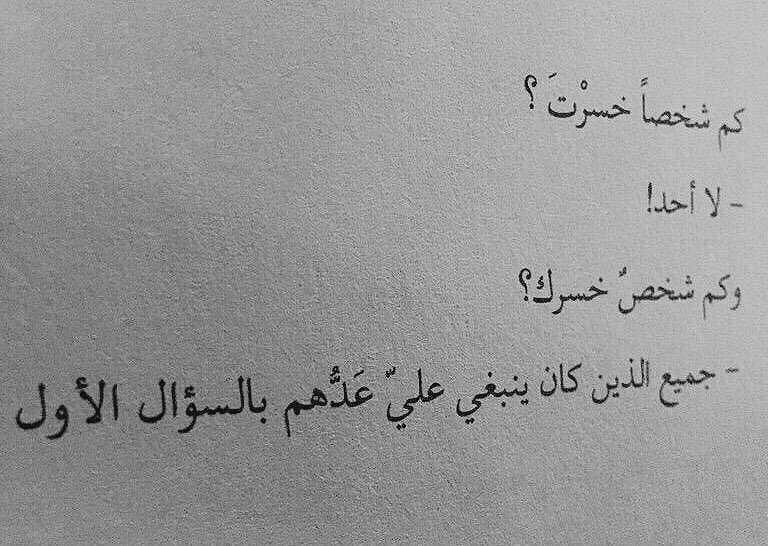 كم شخصاً خسرْتَ ؟
- لا أحد!
وكم شخصٌ خسرك؟
- جميع الذين كان ينبغي عليّ عَدُّهم بالسؤال الأول